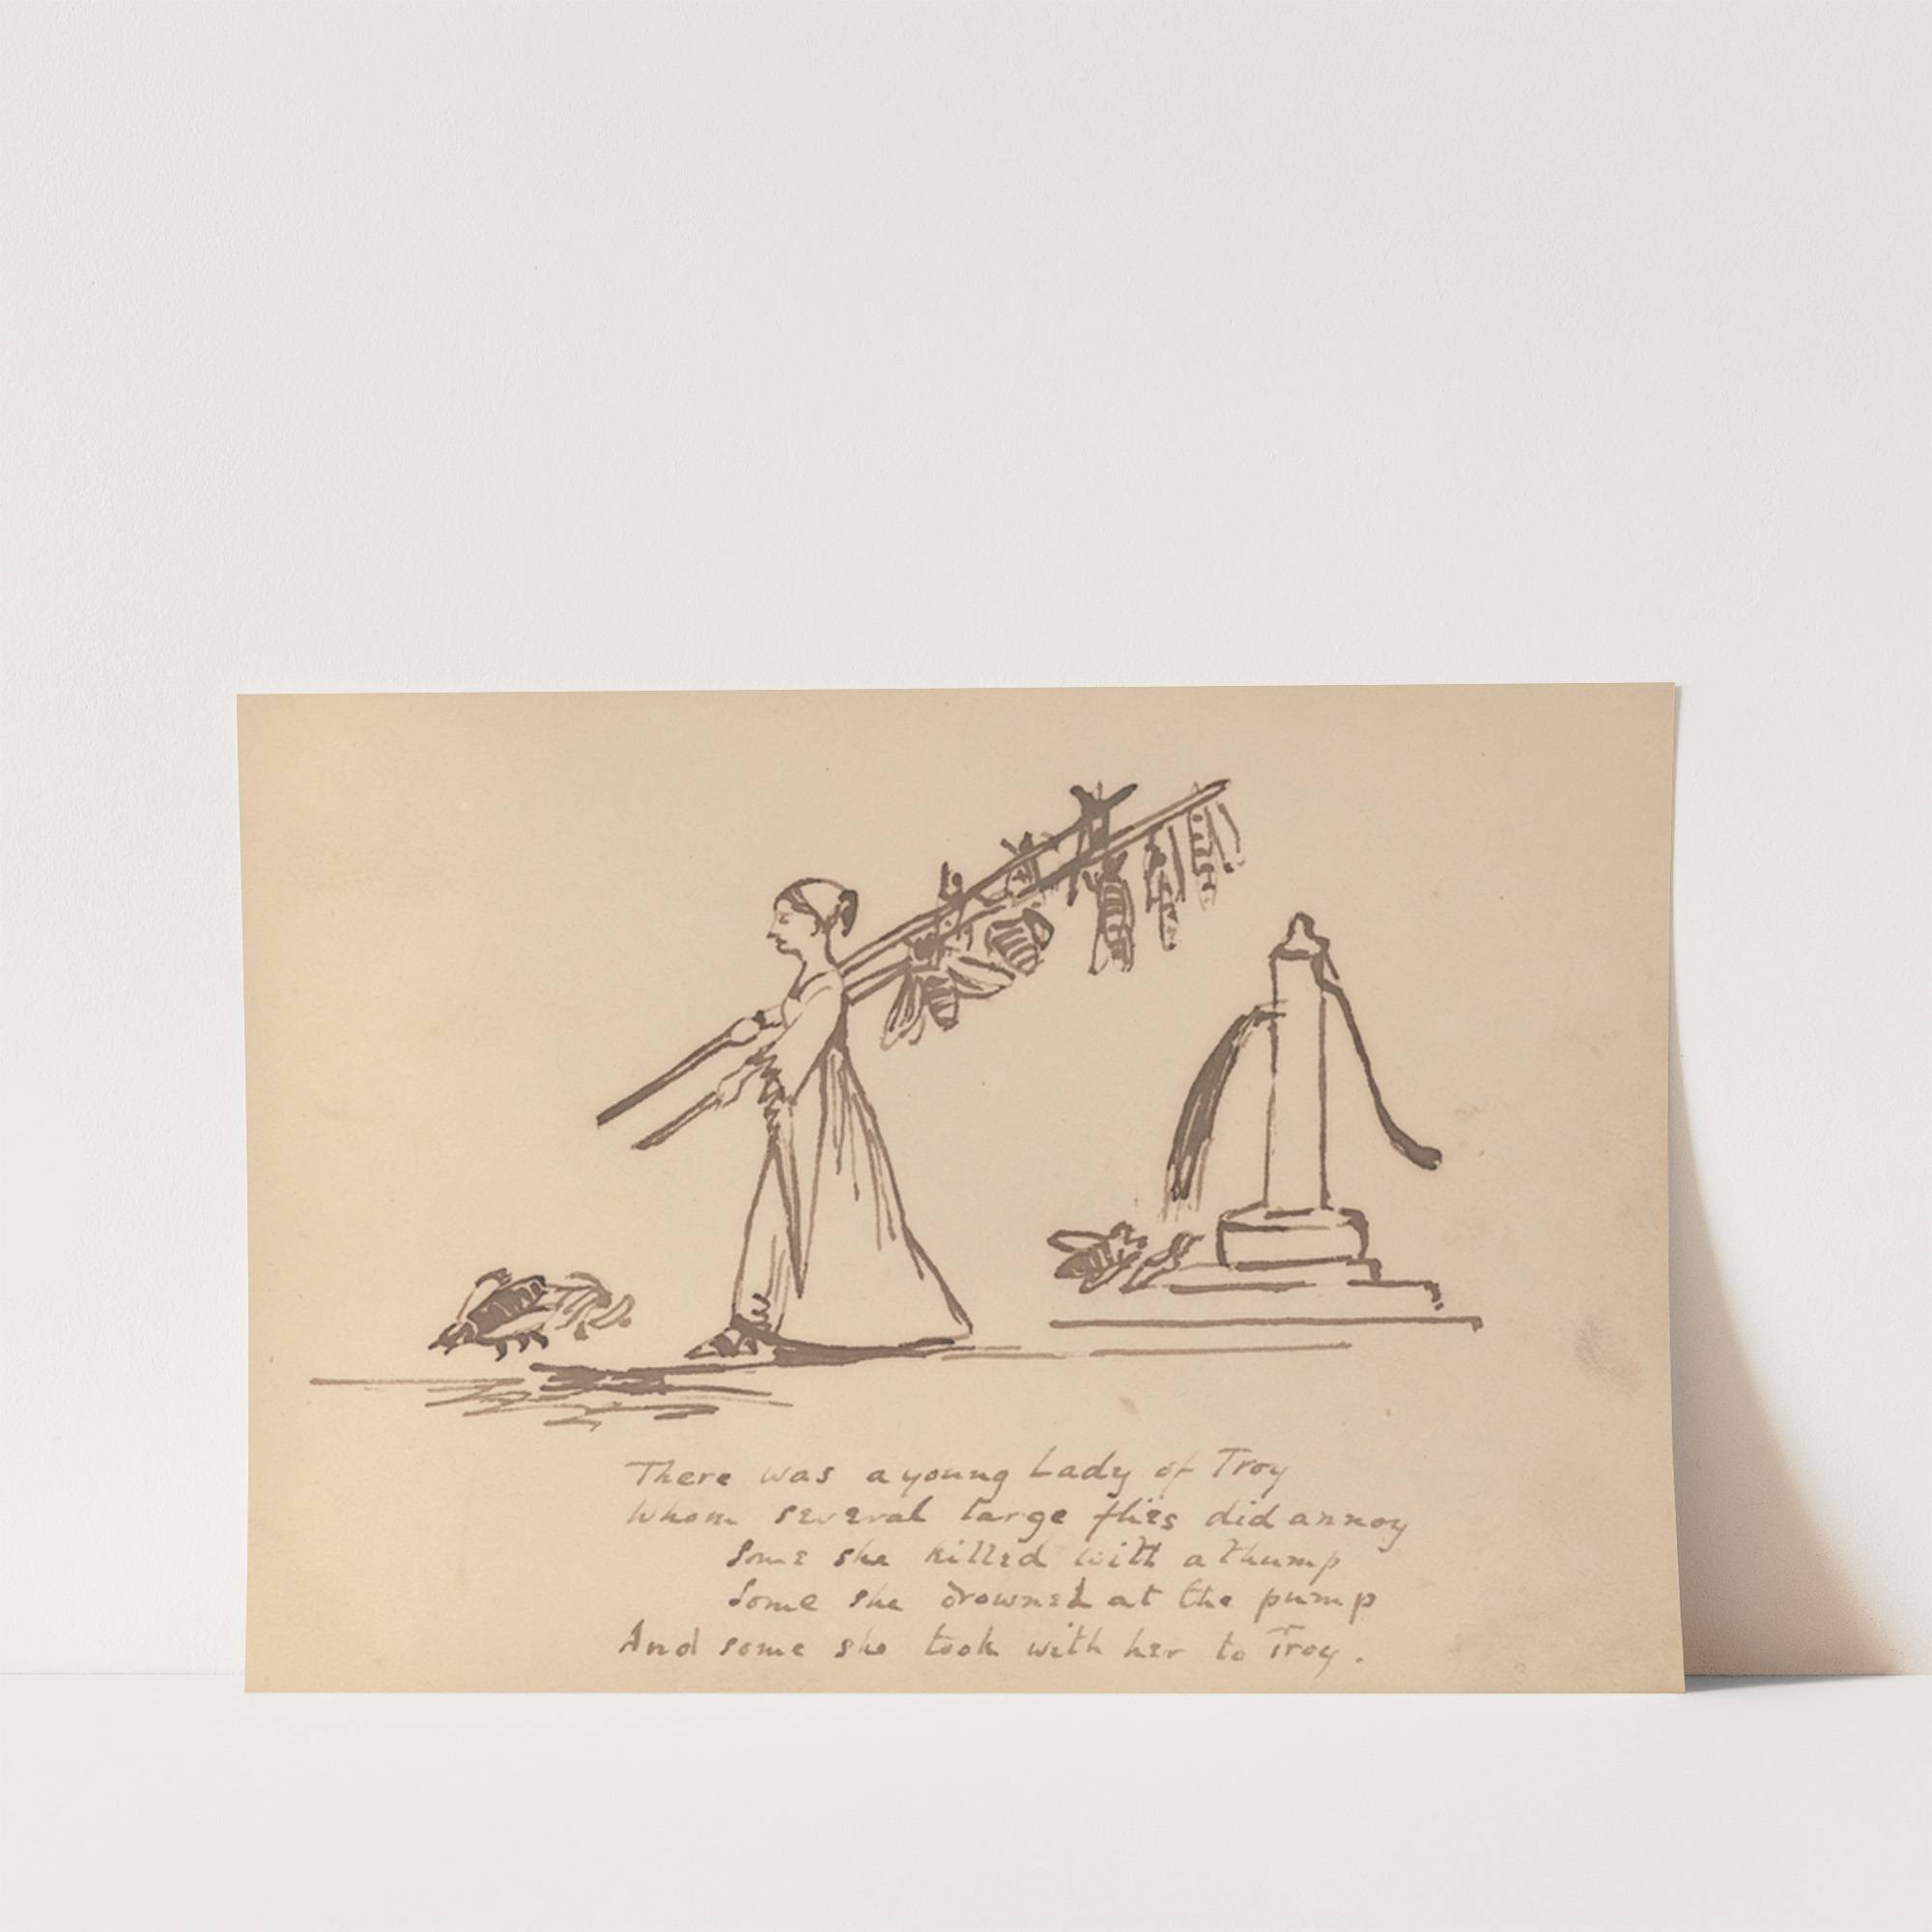 There was a young Lady of Troy
Whom several large flies did annoy
Some she killed with a thump
Some she drowned at the pump
And some she took with her to Troy.